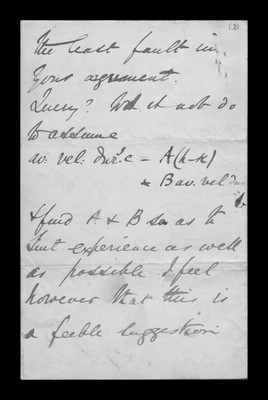 (2)
the least fault in
your argument.
Query? Wd it not do
to assume
av: vel: dur: c = A(h-k)
+ B av. vel dur
b
& find A & B so as to
suit experience as well
as possible I feel
however that this is
a feeble suggestion